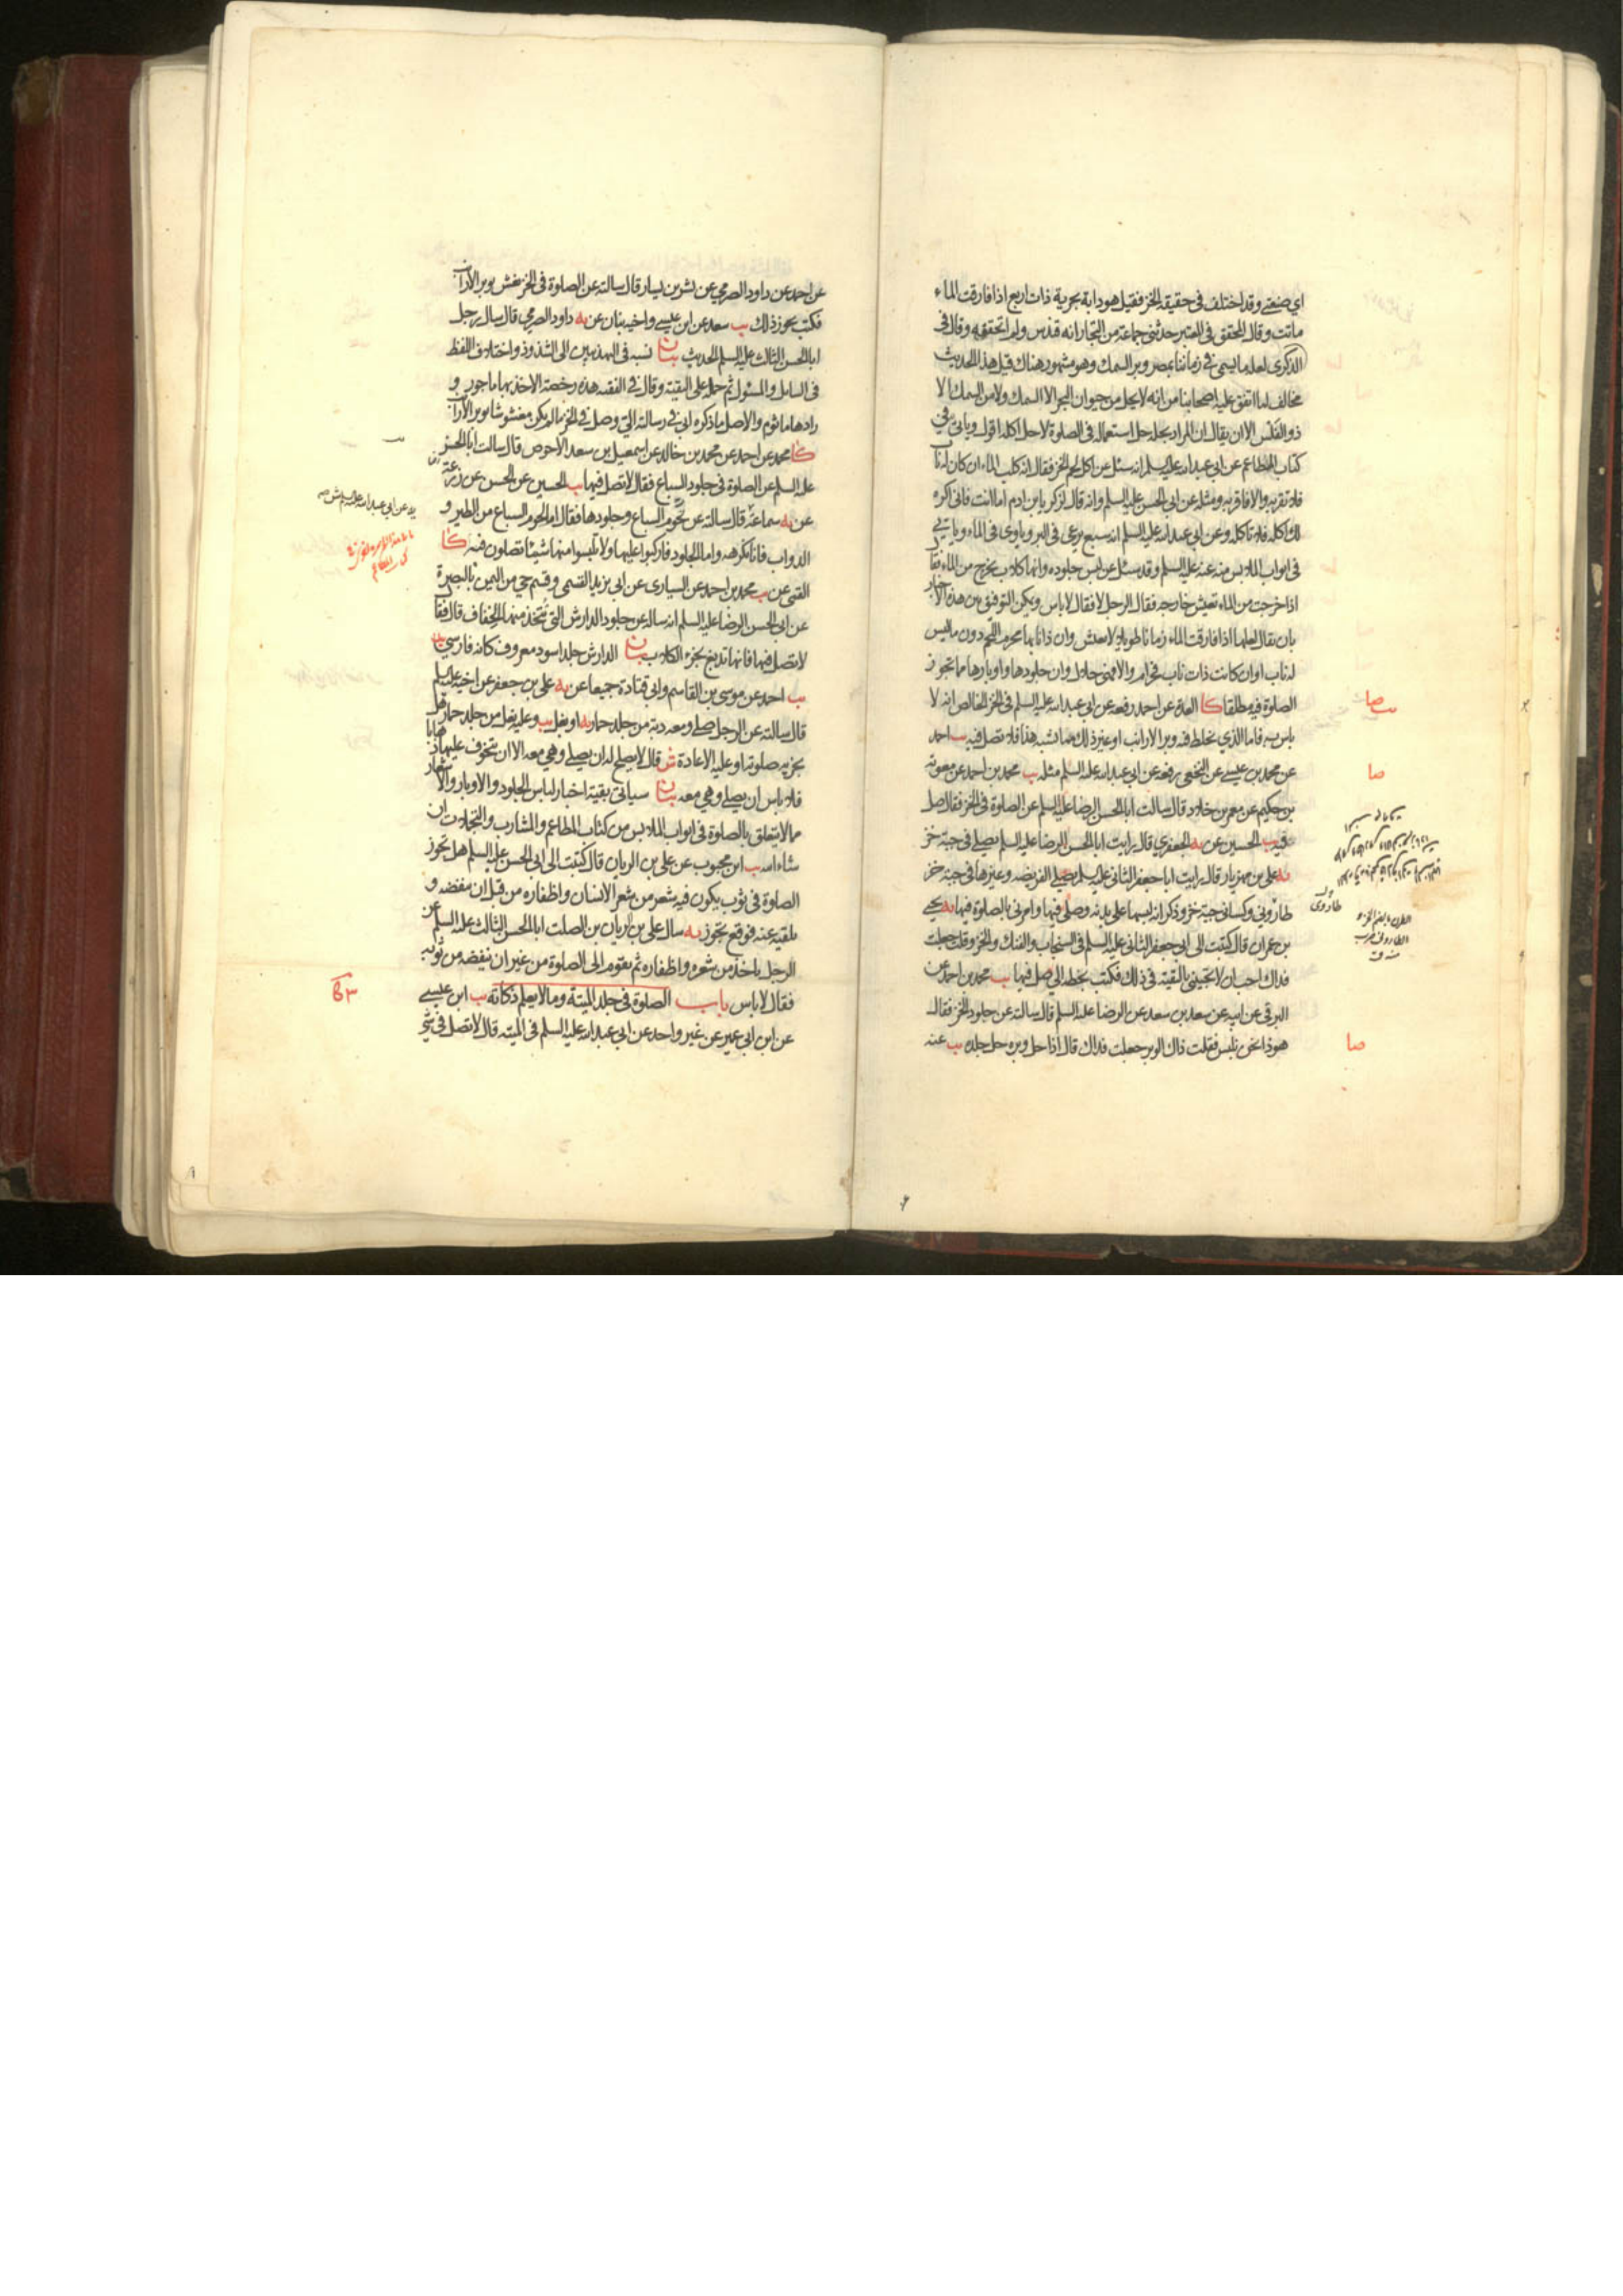 اي صنعي وقد اختلف في حقيقة الخز فقيل هو دابة بحرية ذات اربع اذا فارقت الماء
ماتت وقال المحقق في المعتبر حدثني جماعة من التجار انه قندس ولم اتحققه وقال في
الذكرى لعله ما يسمى في زماننا بمصر وبر السمك وهو مشهور هناك قيل هذا الحديث
مخالف لما اتفق عليه اصحابنا من انه لا يحل من حيوان البحر الا السمك ولا من السمك الا
ذو الفلس الا ان يقال ان المراد بحله حل استعماله في الصلوة لا حل اكله اقول وياتي في
كتاب المطاعم عن ابي عبد الله عليه السلم انه سئل عن اكل لحم الخز فقال انه كلب الماء ان كان له ناب
فلا تقربه والا فاقربه ومثله عن ابي الحسن عليه السلم وانه قال لزكريا بن ادم اما انت فاني اكره
لك اكله فلا تاكله وعن ابي عبد الله عليه السلم انه سبع يرعى في البر وياوى في الماء وياتي
في ابواب الملابس منه عنه عليه السلم وقد سئل عن لبس جلوده وانها كلاب يخرج من الماء فقال
اذا خرجت من الماء تعيش خارجه فقال الرجل لا فقال لا باس ويمكن التوفيق بين هذه الاخبار
بان يقال لعلها اذا فارقت الماء زمانا طويلا لا تعش وان ذا نابها محرم اللحم دون ما ليس
له ناب او ان كانت ذات ناب فحرام والا فهي حلال وان جلودها واوبارها مما تجوز
الصلوة فيه مطلقا كا العدة عن احمد رفعه عن ابي عبد الله عليه السلم في الخز الخالص انه لا
باس به فاما الذي يخلط فيه وبر الارانب او غير ذلك مما يشبه هذا فلا تصل فيه يب احمد
عن محمد بن عيسى عن النخعي رفعه عن ابي عبد الله عليه السلم مثله يب محمد بن احمد عن معوية
بن حكيم عن معمر بن خلاد قال سالت ابا الحسن الرضا عليه السلم عن الصلوة في الخز فقال صل
فيه يب الحسين عن يه الجعفري قال رايت ابا الحسن الرضا عليه السلم يصلي في جبة خز
يه علي بن مهزيار قال رايت ابا جعفر الثاني عليه السلم يصلي الفريضه وغيرها في جبة خز
طاروني وكساني جبة خز وذكر انه لبسها على بدنه وصلى فيها وامرني بالصلوة فيها يه يحيى
بن عمران قال كتبت الى ابي جعفر الثاني عليه السلم في السنجاب والفنك والخز وقلت جعلت
فداك احب ان لا تجيبني بالتقية في ذلك فكتب بخطه الي صل فيها يب محمد بن احمد عن
البرقي عن ابيه عن سعد بن سعد عن الرضا عليه السلم قال سالته عن جلود الخز فقال
هو ذا نحن نلبس فقلت ذاك الوبر جعلت فداك قال اذا حل وبره حل جلده يب عنه
صا
صا
طاروي
صا
عن احمد عن داود الصرمي عن بشر بن يسار قال سالته عن الصلوة في الخز يغش بوبر الارانب
فكتب يجوز ذلك يب سعد عن ابن عيسى واخيه بنان عن يه داود الصرمي قال سال رجل
ابا الحسن الثالث عليه السلم الحديث بيان نسبه في التهذيبين الى الشذوذ واختلاف اللفظ
في السايل والمسئول ثم حمله على التقية وقال في الفقيه هذه رخصة الاخذ بها ماجور و
رادها ماثوم والاصل ما ذكره ابي في رسالته الي وصل في الخز ما لم يكن مغشوشا بوبر الارانب
كا محمد عن احمد عن محمد بن خالد عن اسمعيل بن سعد الاحوص قال سالت ابا الحسن
عليه السلم عن الصلوة في جلود السباع فقال لا تصل فيها يب الحسين عن الحسن عن زرعة
عن يه سماعة قال سالته عن لحوم السباع وجلودها فقال اما لحوم السباع من الطير و
الدواب فانا نكرهه واما الجلود فاركبوا عليها ولا تلبسوا منها شيئا تصلون فيه كا
القمي عن يب محمد بن احمد عن السياري عن ابي يزيد القسمي وقسم حي من اليمن بالبصرة
عن ابي الحسن الرضا عليه السلم انه ساله عن جلود الدارش التي يتخذ منها الخفاف قال فقال
لا تصل فيها فانها تدبغ بخرء الكلاب بيان الدارش جلد اسود معروف كانه فارسي
يب احمد عن موسى بن القاسم وابي قتادة جميعا عن يه علي بن جعفر عن اخيه عليه السلم
قال سالته عن الرجل صلى ومعه دبة من جلد حمار يه او بغل يب وعليه نعل من جلد حمار هل
يجزيه صلوته او عليه الاعادة ش قال لا يصلح له ان يصلي وهي معه الا ان يتخوف عليها ذهابا
فلا باس ان يصلي وهي معه بيان سياتي بقية اخبار لباس الجلود والاوبار والاشعار
مما لا يتعلق بالصلوة في ابواب الملابس من كتاب المطاعم والمشارب والتجملات ان
شاء الله يب ابن محبوب عن علي بن الريان قال كتبت الى ابي الحسن عليه السلم هل تجوز
الصلوة في ثوب يكون فيه شعر من شعر الانسان واظفاره من قبل ان ينفضه و
يلقيه عنه فوقع يجوز يه سال علي بن الريان بن الصلت ابا الحسن الثالث عليه السلم عن
الرجل ياخذ من شعره واظفاره ثم يقوم الى الصلوة من غير ان ينفضه من ثوبه
فقال لا باس باب الصلوة في جلد الميتة وما لا يعلم ذكاته يب ابن عيسى
عن ابن ابي عمير عن غير واحد عن ابي عبد الله عليه السلم في الميته قال لا تصل في شئ